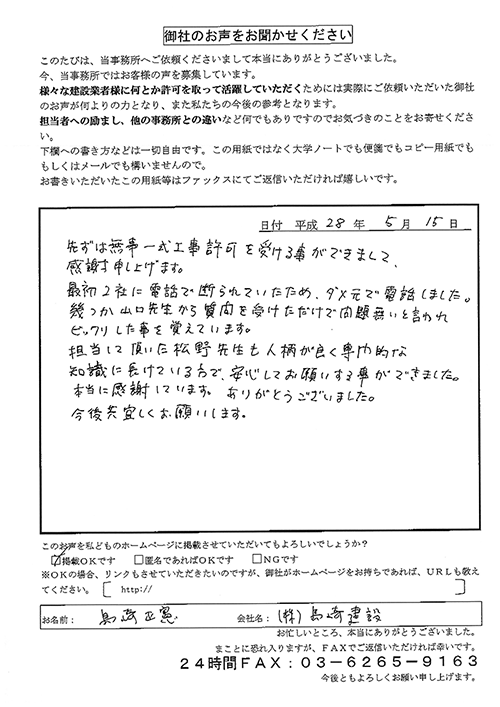 御社のお声をお聞かせください
このたびは、当事務所へご依頼くださいまして本当にありがとうございました。
今、当事務所ではお客様の声を募集しています。
様々な建設業者様に何とか許可を取って活躍していただくためには実際にご依頼いただいた御社
のお声が何よりの力となり、また私たちの今後の参考となります。
担当者への励まし、他の事務所との違いなど何でもありですのでお気づきのことをお寄せくださ
い。
下欄への書き方などは一切自由です。この用紙ではなく大学ノートでも便箋でもコピー用紙でも
もしくはメールでも構いませんので。
お書きいただいたこの用紙等はファックスにてご返信いただければ嬉しいです。
日付 平成 28 年 5 月 15 日
先ずは無事一式工事許可を受ける事ができまして、
感謝申し上げます。
最初2社に電話で断られていたため、ダメ元で電話しました。
幾つか山口先生から質問を受けただけで問題無いと言われ
ビックリした事を覚えています。
担当して頂いた松野先生も人柄が良く専門的な
知識に長けている方で、安心してお願いする事ができました。
本当に感謝しています。ありがとうございました。
今後共宜しくお願いします。
このお声を私どものホームページに掲載させていただいてもよろしいでしょうか?
☑掲載OKです □匿名であればOKです □NGです
※OKの場合、リンクもさせていただきたいのですが、御社がホームページをお持ちであれば、URLも教え
てください。〔 http:// 〕
お名前: 島崎正憲 会社名: (株)島崎建設
お忙しいところ、本当にありがとうございました。
まことに恐れ入りますが、FAXでご返信いただければ幸いです。
24時間FAX:03-6265-9163
今後ともよろしくお願い申し上げます。